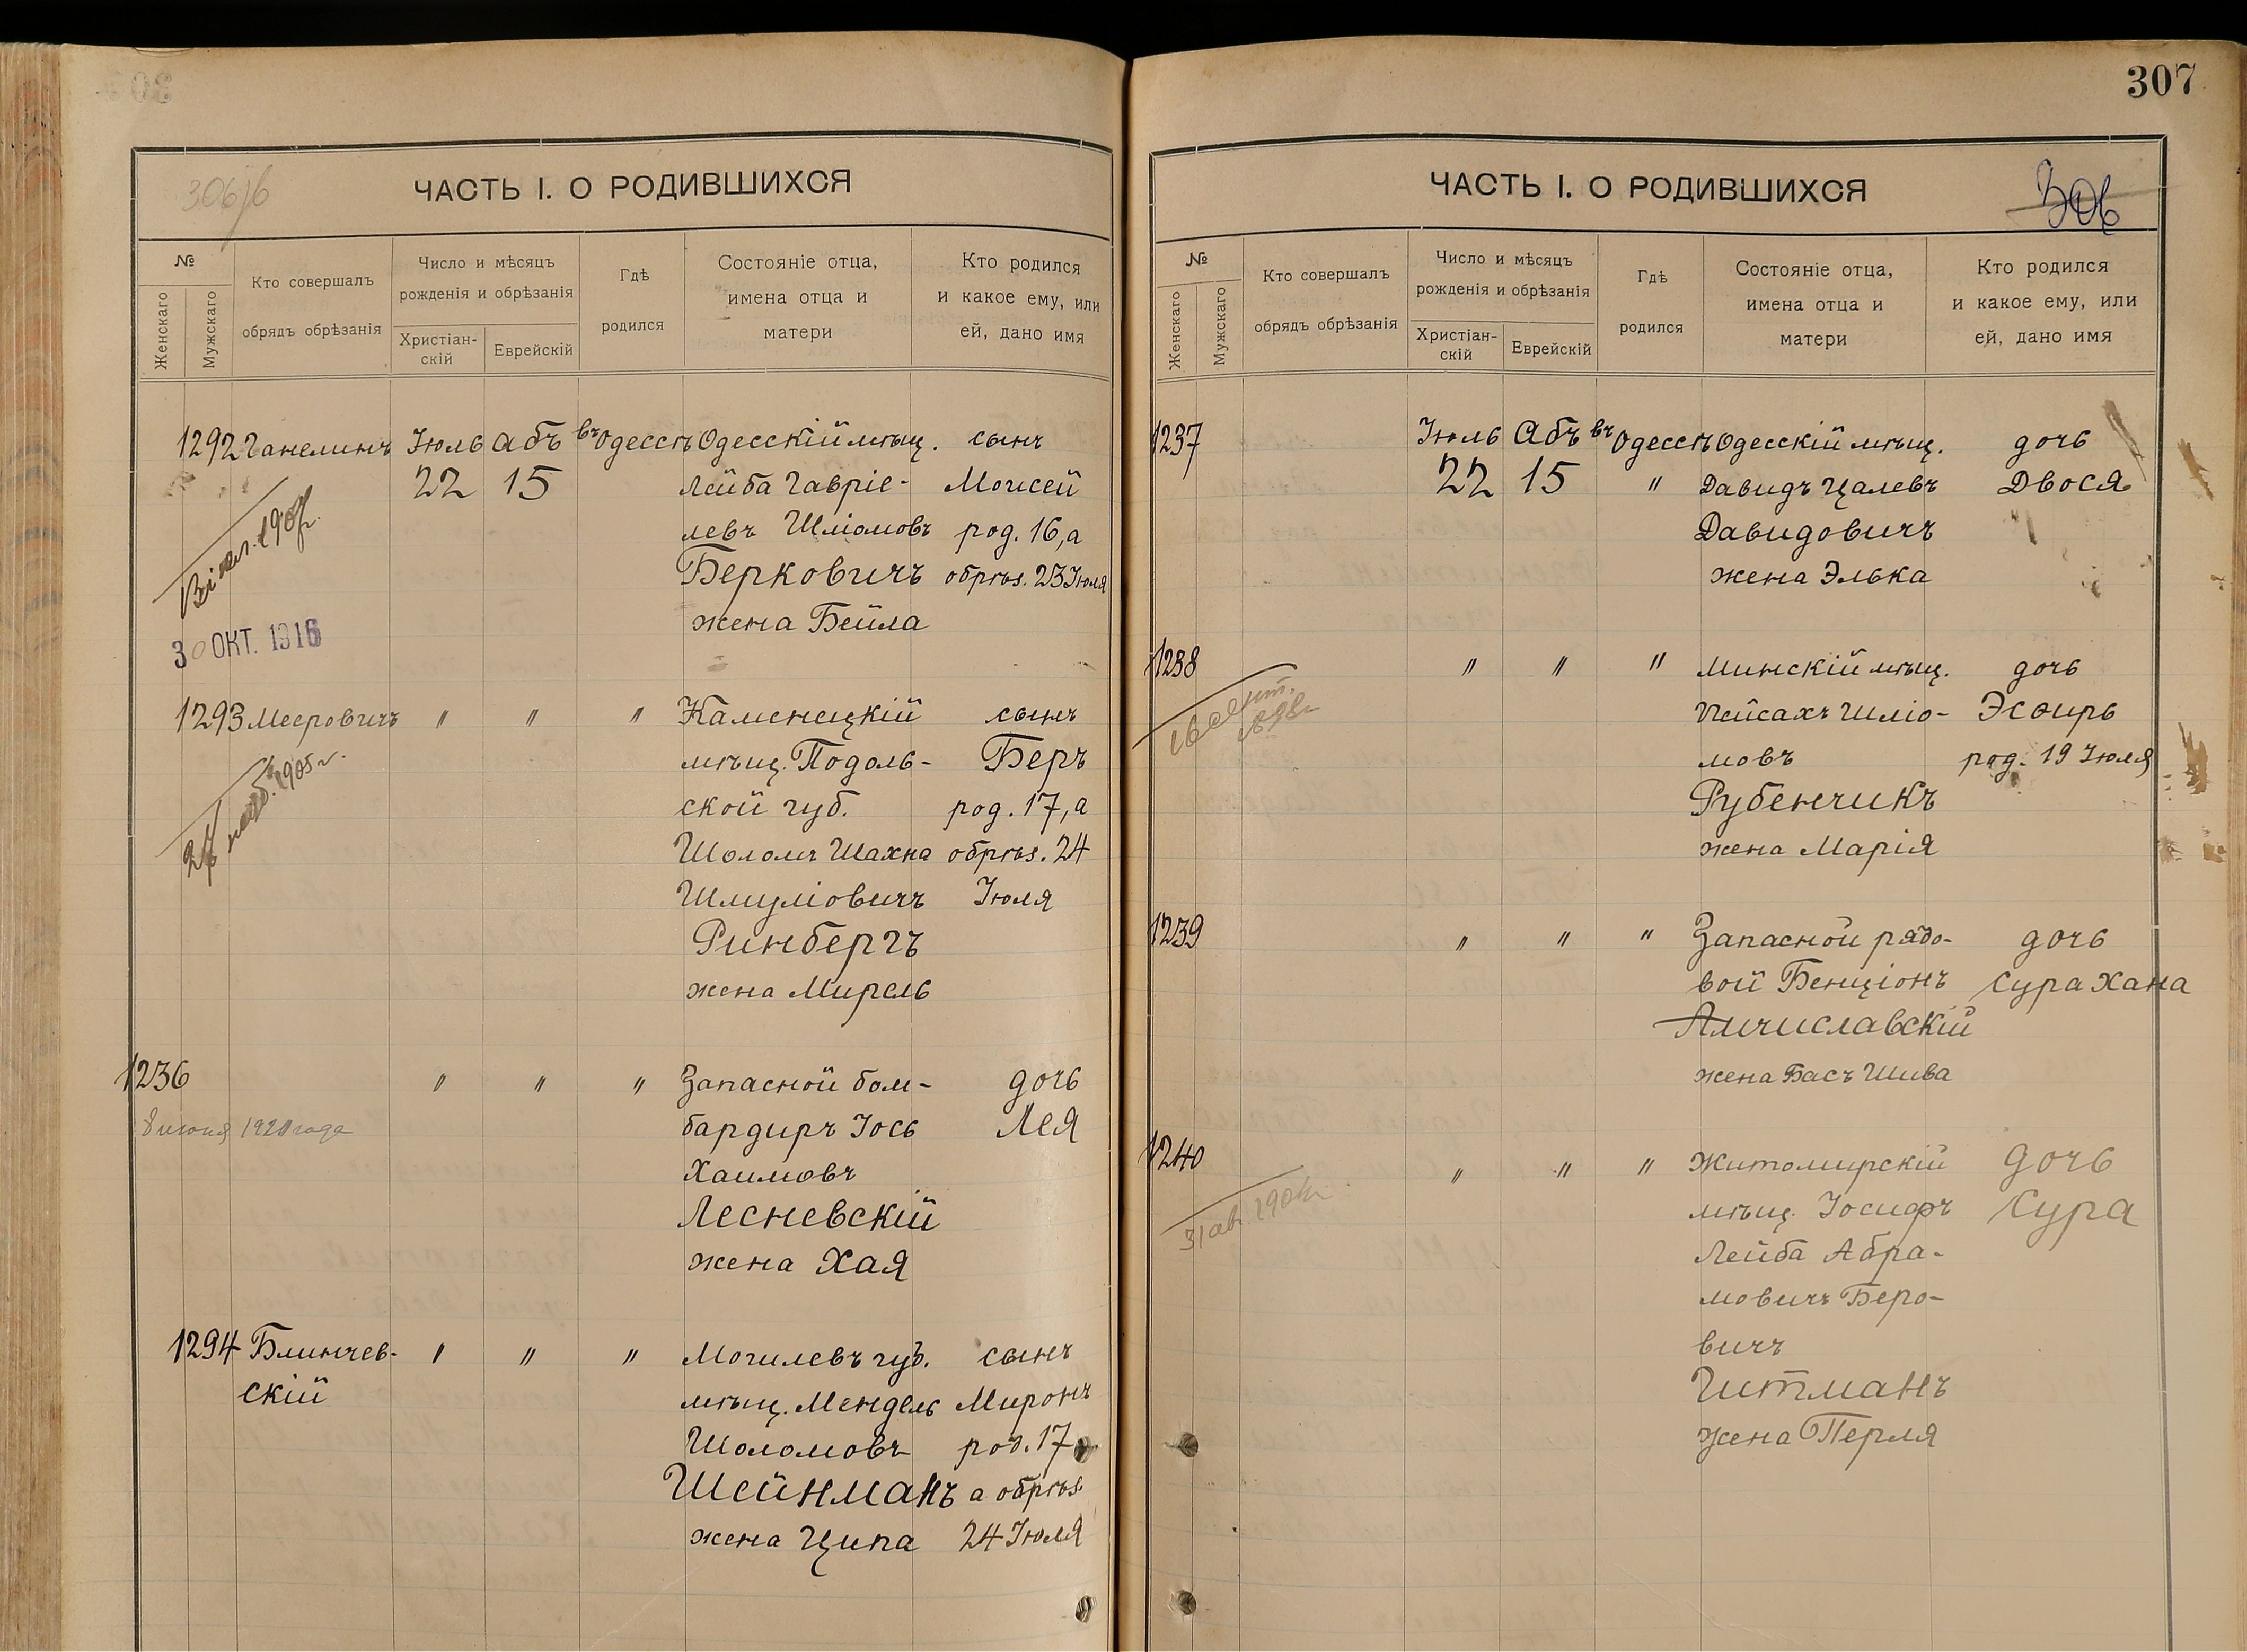 307
306
ЧАСТЬ I. О РОДИВШИХСЯ
№
Женскаго
Мужскаго
Кто совершалъ
обрядъ обрѣзанія
Число и мѣсяцъ
рожденія и обрѣзанія
Христіан-
скій
Еврейскій
Гдѣ
родился
Состояніе отца,
имена отца и
матери
Кто родился
и какое ему, или
ей, дано имя
1292 Ганелинъ Іюль Абъ въ Одессѣ Одесскій мѣщ. сынъ
22 15 Лейба Гавріе- Моисей
левъ Шліомовъ род. 16, а
Берковичъ обрѣз. 23 Іюля
жена Бейла
30 ОКТ. 1916
1293 Мееровичъ " " " Каменецкій сынъ
мѣщ. Подоль- Беръ
ской губ. род. 17, а
1905 г.
Шоломъ Шахна обрѣз. 24
Шмуліовичъ Іюля
Ринбергъ
жена Мирель
1236 " " " Запасной бом- дочь
1920 года бардиръ Іось Лея
Хаимовъ
Лесневскій
жена Хая
1294 Блинчев- " " " Могилевъ губ. сынъ
скій мѣщ. Мендель Миронъ
Шоломовъ род. 17
Шейнманъ а обрѣз.
жена Ципа 24 Іюля
ЧАСТЬ I. О РОДИВШИХСЯ
306
№
Женскаго
Мужскаго
Кто совершалъ
обрядъ обрѣзанія
Число и мѣсяцъ
рожденія и обрѣзанія
Христіан-
скій
Еврейскій
Гдѣ
родился
Состояніе отца,
имена отца и
матери
Кто родился
и какое ему, или
ей, дано имя
1237 Іюль Абъ въ Одессѣ Одесскій мѣщ. дочь
22 15 " Давидъ Цалевъ Двося
Давидовичъ
жена Элька
1238 " " " Минскій мѣщ. дочь
Пейсахъ Шліо- Эсѳирь
мовъ род. 19 Іюля
Рубенчикъ
жена Марія
1239 " " " Запасной рядо-  дочь
вой Бенціонъ Сура Хана
Амчиславскій
жена Басъ Шива
1240 " " " Житомирскій дочь
мѣщ. Іосифъ Сура
Лейба Абра-
мовичъ Беро-
вичъ
Гитманъ
жена Перля